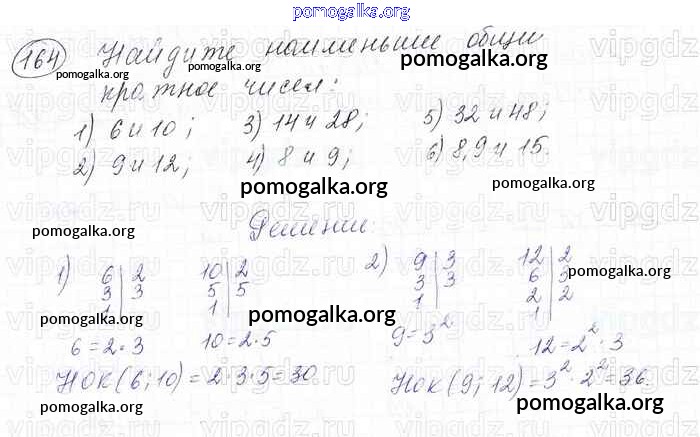 pomogalka.org
164 Найдите наименьшие общи
кратное чисел:
1) 6 и 10; 3) 14 и 28; 5) 32 и 48;
2) 9 и 12; 4) 8 и 9; 6) 8,9 и 15.
Решение:
1) 6 | 2 10 | 2 2) 9 | 3 12 | 2
3 | 3 5 | 5 3 | 3 6 | 3
1 | 1 | 1 | 2 | 2
1 |
6 = 2 · 3 10 = 2 · 5 9 = 3² 12 = 2² · 3
НОК (6; 10) = 2 · 3 · 5 = 30 НОК (9; 12) = 3² · 2² = 36.
pomogalka.org
pomogalka.org
pomogalka.org
pomogalka.org
pomogalka.org
pomogalka.org
pomogalka.org
pomogalka.org
pomogalka.org
pomogalka.org
vipgdz.ru